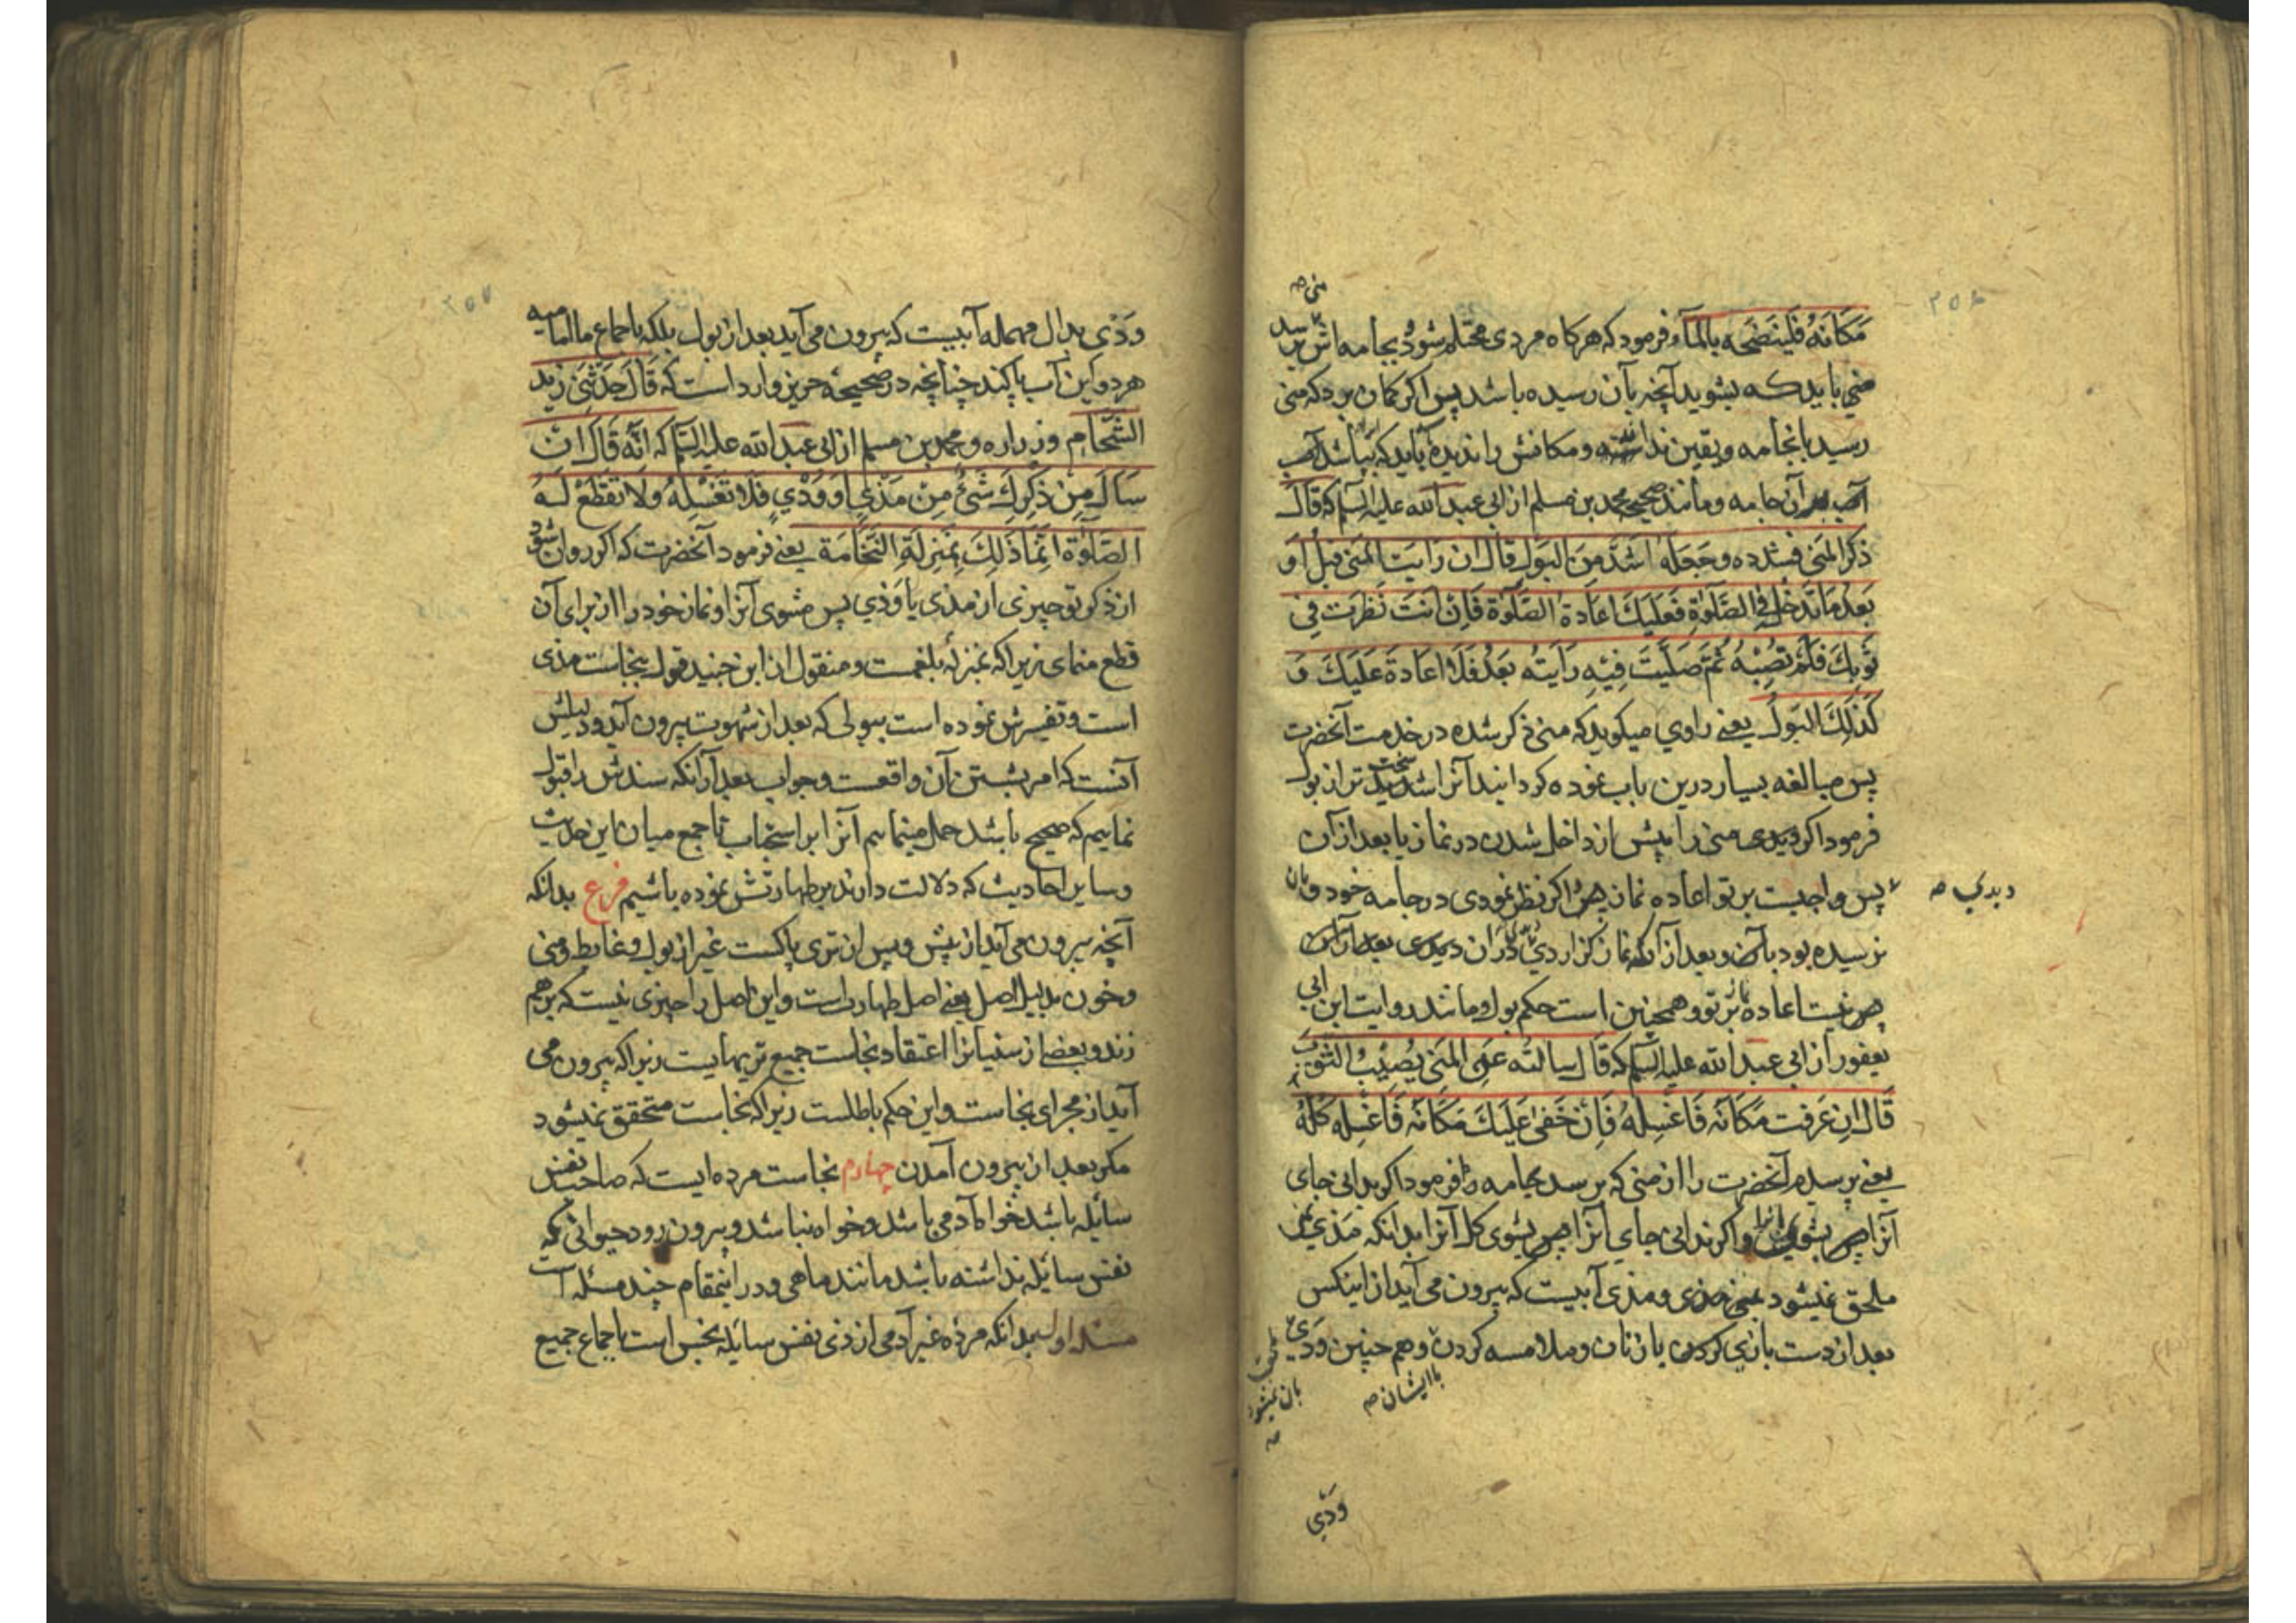 ۲۵۶
منی صه
مَکَانَهُ فَلْیَنْضَحه بِالمآءِ و فرمود که هرکاه مردی محتلم شود بجامه اش برسد
منی باید که بشوید آنچه بآن رسیده باشد پس اکر کمان برد که منی
رسید بانجامه و یقین نداشته و مکانش را ندیده باید که بپاشد
آب بر آن جامه و مانند صحیحه محمد بن مسلم از ابی عبد الله علیه السلم که قَالَ
ذکَرَ المَنی فشدده وجَعَلَهُ اشَدَّ مِنَ البَولِ قالَ ان رَایتَ المَنی قبل او
بَعْدَ مَا تَدخُل فِی الصَّلوةِ فَعَلَیكَ اعَادة الصَّلَوٰة فَاِن انتَ نَظَرت فِی
ثَوبِكَ فَلَم تُصِبْهُ ثُمَّ صَلَّیتَ فِیهِ رَایتُه بَعْدُ فَلَا اعَادةَ عَلَیكَ وَ
کَذٰلِكَ البَولُ یعنی راوی میکوید که منی ذکر شده در خدمت آنحضرت
پس مبالغه بسیار درین باب نموده کردانیدآنرا سخت تر از بول
فرمود اکر دیدی منی را پیش از داخل شدن در نماز یا بعد از آن
پس واجبست بر تو اعاده نماز پس اکر نظر نمودی در جامه خود و بان
دیدی صه
نرسیده بود بآن و بعد از آنکه نماز کزاردی در آن دیدی بعد از آن
پس نیست اعاده بر تو و همچنین است حکم بول و مانند روایت ابن ابی
یعفور از ابی عبد الله علیه السلم که قَالَ سالتُه عَنِ المَنی یُصِیْبُ الثَّوبَ
قَالَ اِن عَرفت مَکَانَه فَاغسِلهُ فَاِن خَفیَ عَلَیكَ مَکَانَه فَاغسِله کُلَّهُ
یعنی پرسیدم آنحضرت را از منی که برسد بجامه فرمود اکر بدانی جای
آنرا پس بشوی آنرا و اکر ندانی جای آنرا پس بشوی کل آنرا بدانکه مَذی
ملحق نمیشود بمنی و مذی آبیست که بیرون می آید از اینکس
بعد از دست بازی کردن با زنان و ملامسه کردن و هم چنین وَدی
با ایشان صه
بان نمیشود صه
وَدی
۲۵۷
وَدی بدال مهمله آبیست که بیرون می آید بعد از بول بلکه باجماع ما امامیه
هر دو این آب پاکند چنانچه در صحیحه حریز وارد است که قَالَ حَدَّثَنِی زَید
الشَّحّام و زراره و محمد بن مسلم از ابی عبد الله علیه السلم که انَّه قَالَ ان
سَالَ مِن ذَکَرِكَ شَیْءٌ مِن مَذی او وَدْیٍ فَلَا تَغسِلهُ وَلَا تَقطَعْ لَهُ
الصَّلوٰة اِنَّمَا ذٰلِكَ بِمَنزِلَةِ النُّخَامَة یعنی فرمود آنحضرت که اکر روان شود
از ذکر تو چیزی از مذی یا وَدی پس مشوی آنرا و نماز خود را از برای آن
قطع منمای زیرا که بمنزلهٔ بلغمست و منقول از ابن جنید قول بنجاست مذی
است و تفسیرش نموده است ببولی که بعد از شهوت بیرون آید و دلیلش
آنست که امر بشستن آن واقعست و جواب بعد از آنکه سندش را قبول
نماییم که صحیح باشد حمل مینماییم آنرا بر استحباب تا جمع میان این حدیث
و سایر احادیث که دلالت دارند بر طهارتش نموده باشیم فرع بدانکه
آنچه بیرون می آید از پیش و پس از تری پاکست غیر از بول و غایط و منی
و خون بدلیل اصل یعنی اصل طهارتست و این اصل را چیزی نیست که برهم
زند و بعضی از سنیانرا اعتقاد نجاست جمیع تریهایست زیرا که بیرون می
آید از مجرای نجاست و این حکم باطلست زیرا که نجاست متحقق نمیشود
مکر بعد از بیرون آمدن چهارم نجاست مرده ایست که صاحب نفس
سائله باشد خواه آدمی باشد و خواه نباشد و بیرون رود حیوانی که
نفس سائله نداشته باشد مانند ماهی و در اینمقام چند مسئله است
مسئله اول بدانکه مرده غیر آدمی از ذی نفس سائله نجس است باجماع جمیع